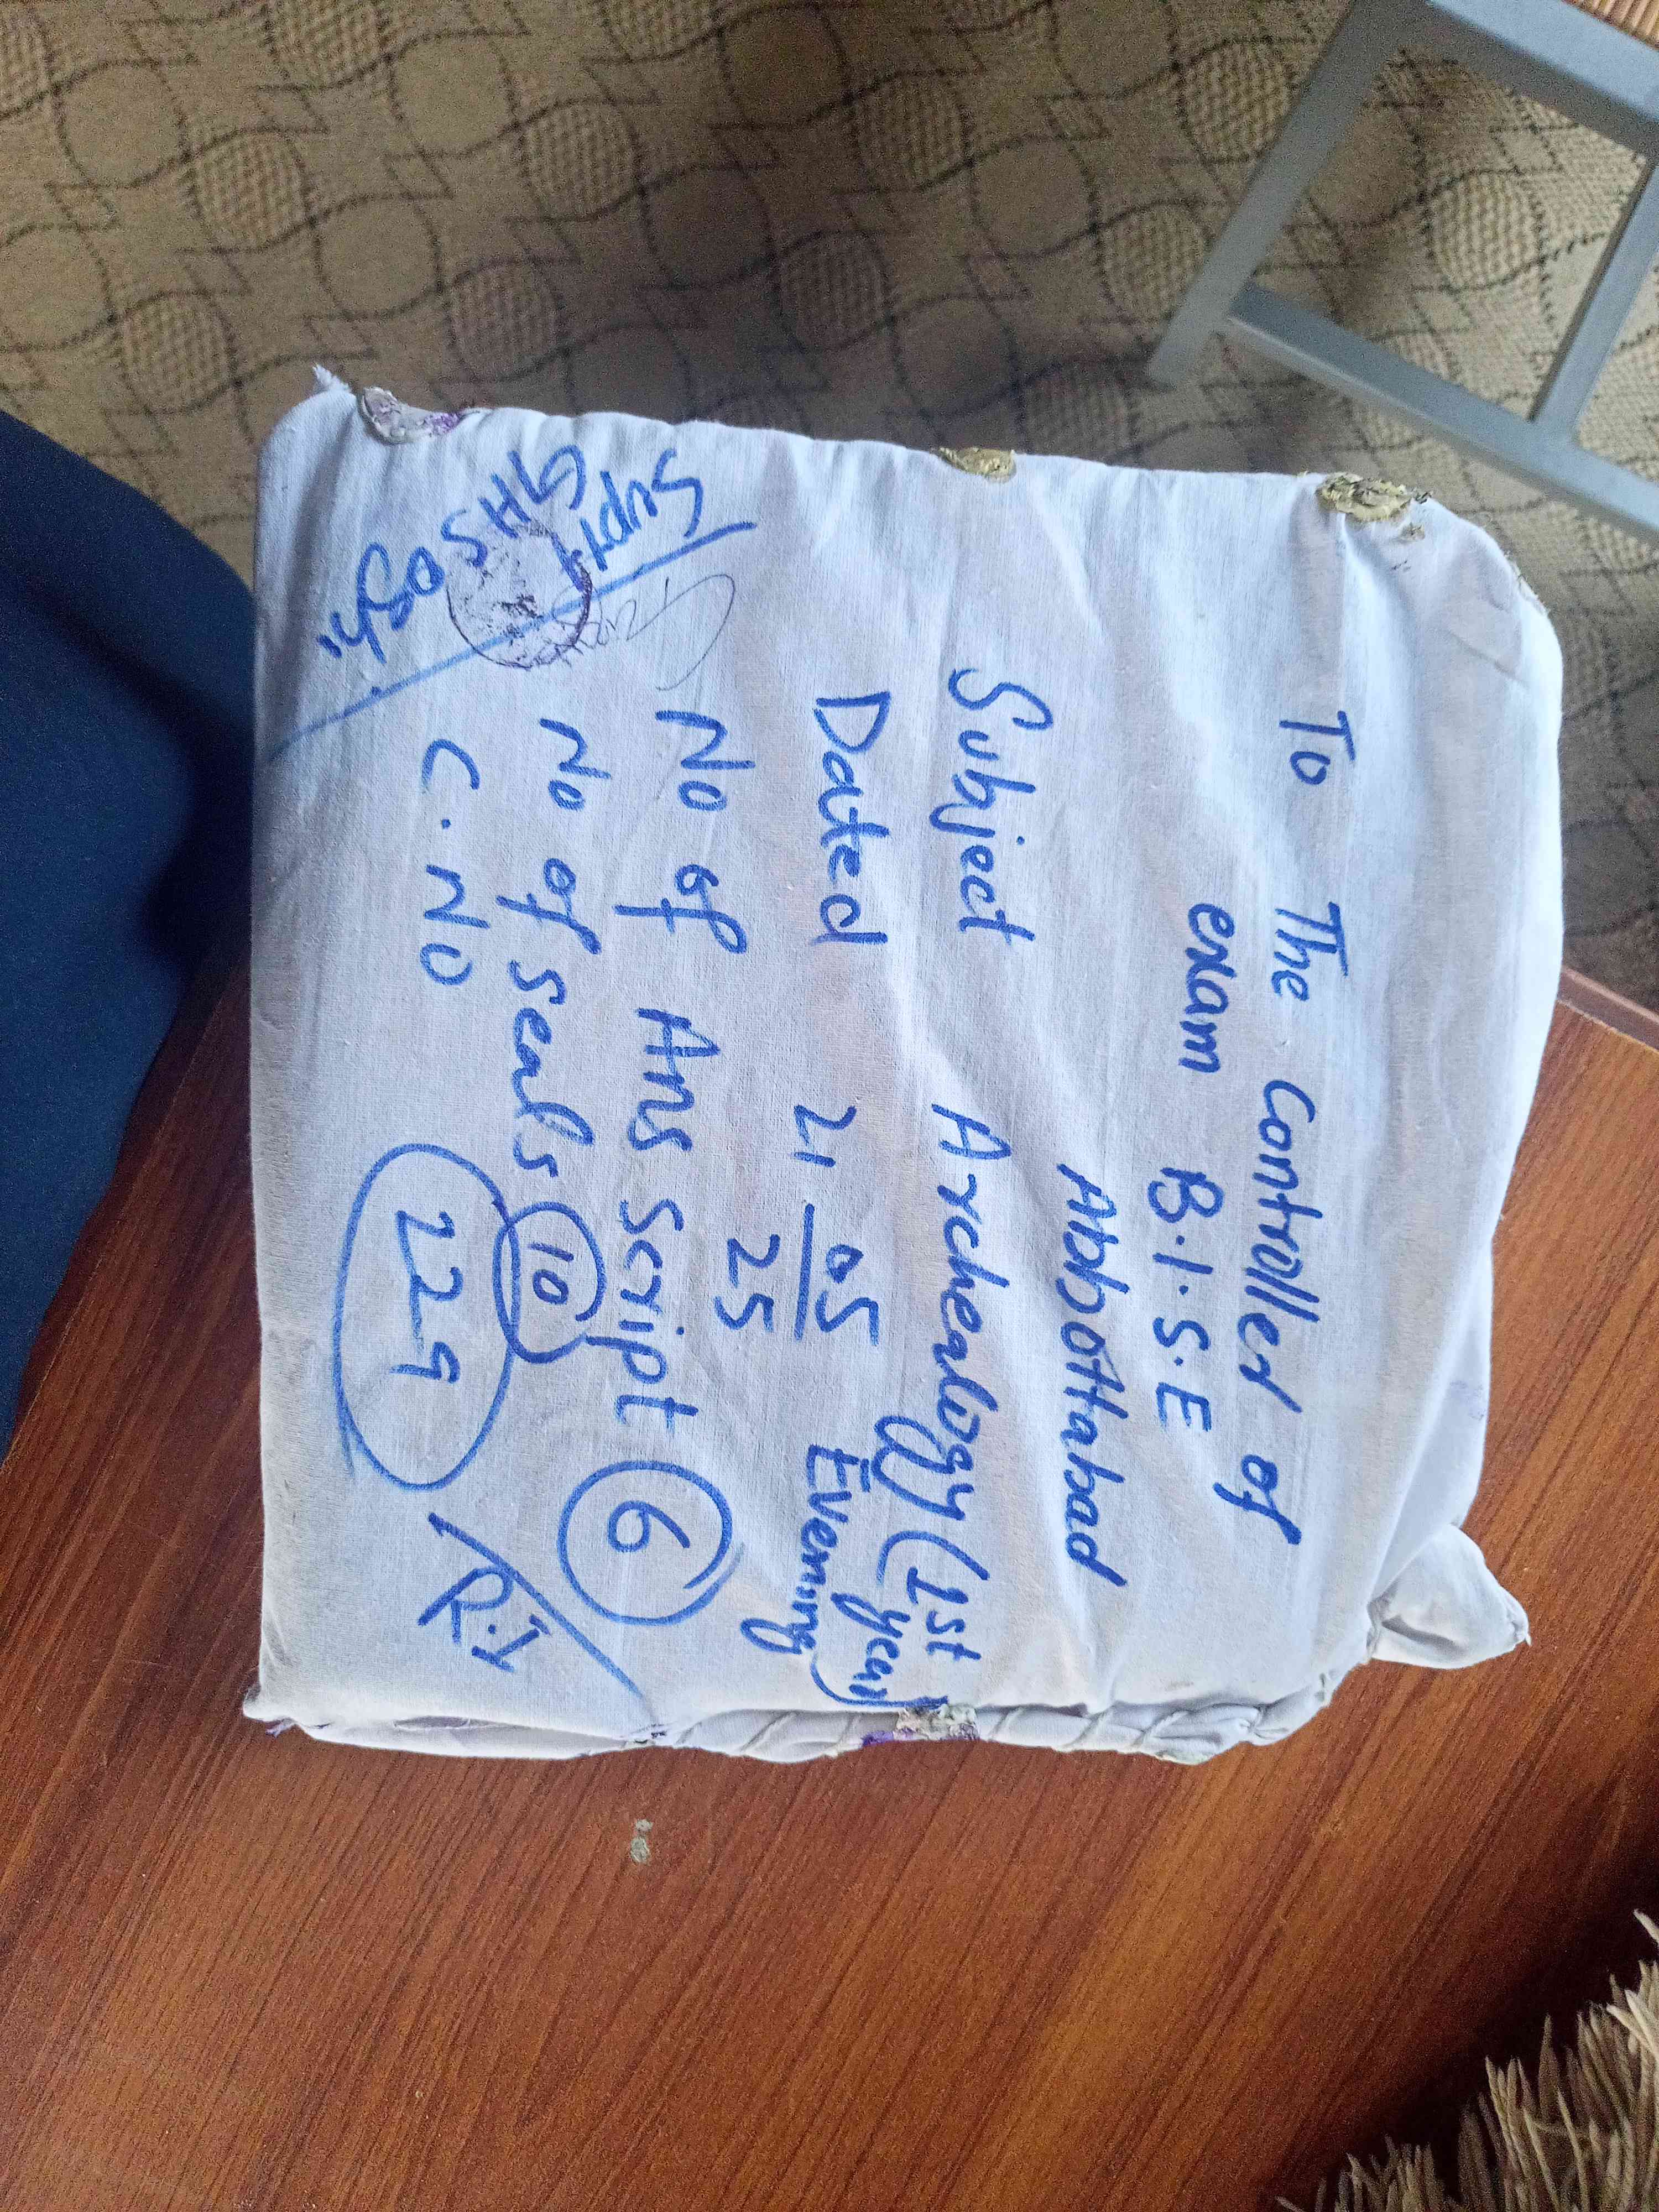 To The Controller of
exam B.I.S.E
Abbottabad
Subject Archealogy (1st year)
Dated 21 05/25 Evening
No of Ans Script 6
No of Seals 10
C.No 229
Supt
GHS Oghi